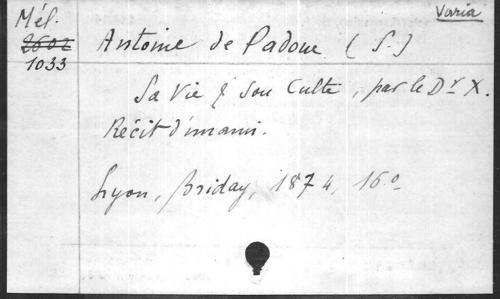 Mél. Varia
2602
1033 Antoine de Padoue (S.)
Sa Vie & son Culte, par le Dr X.
Récit d'un ami.
Lyon, Briday, 1874, 16o